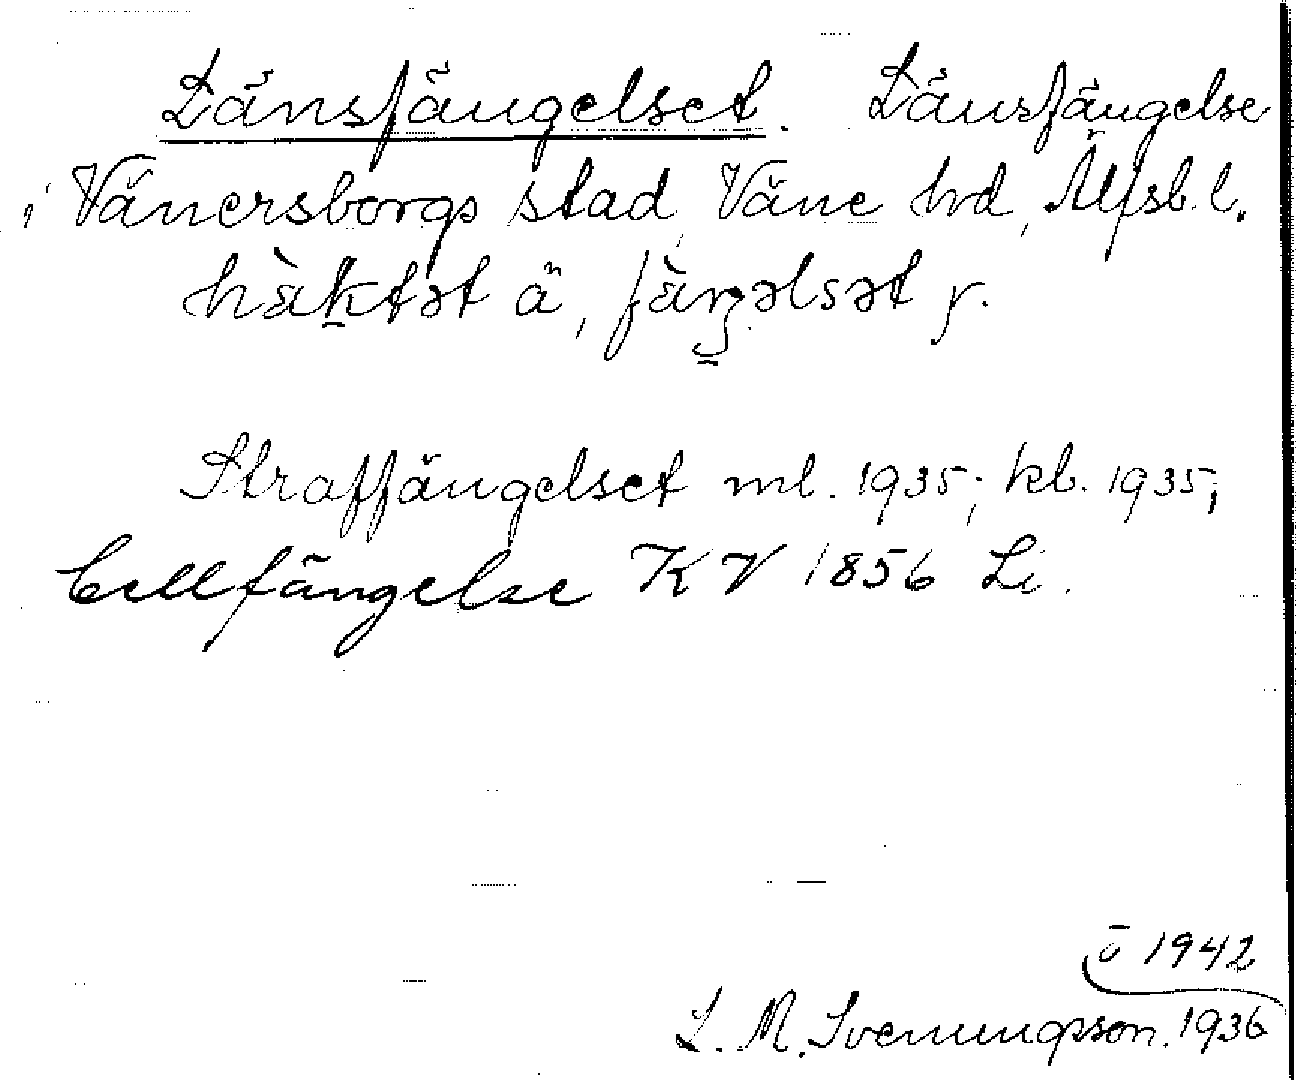 Länsfängelset. Länsfängelse
i Vänersborgs stad, Väne hd, Älfsb. l.
hàktət ä, fàŋəlsət y.
Straffängelset ml. 1935; kb. 1935;
Cellfängelse KV 1856 Li.
ö 1942
L. M. Svenungsson. 1936